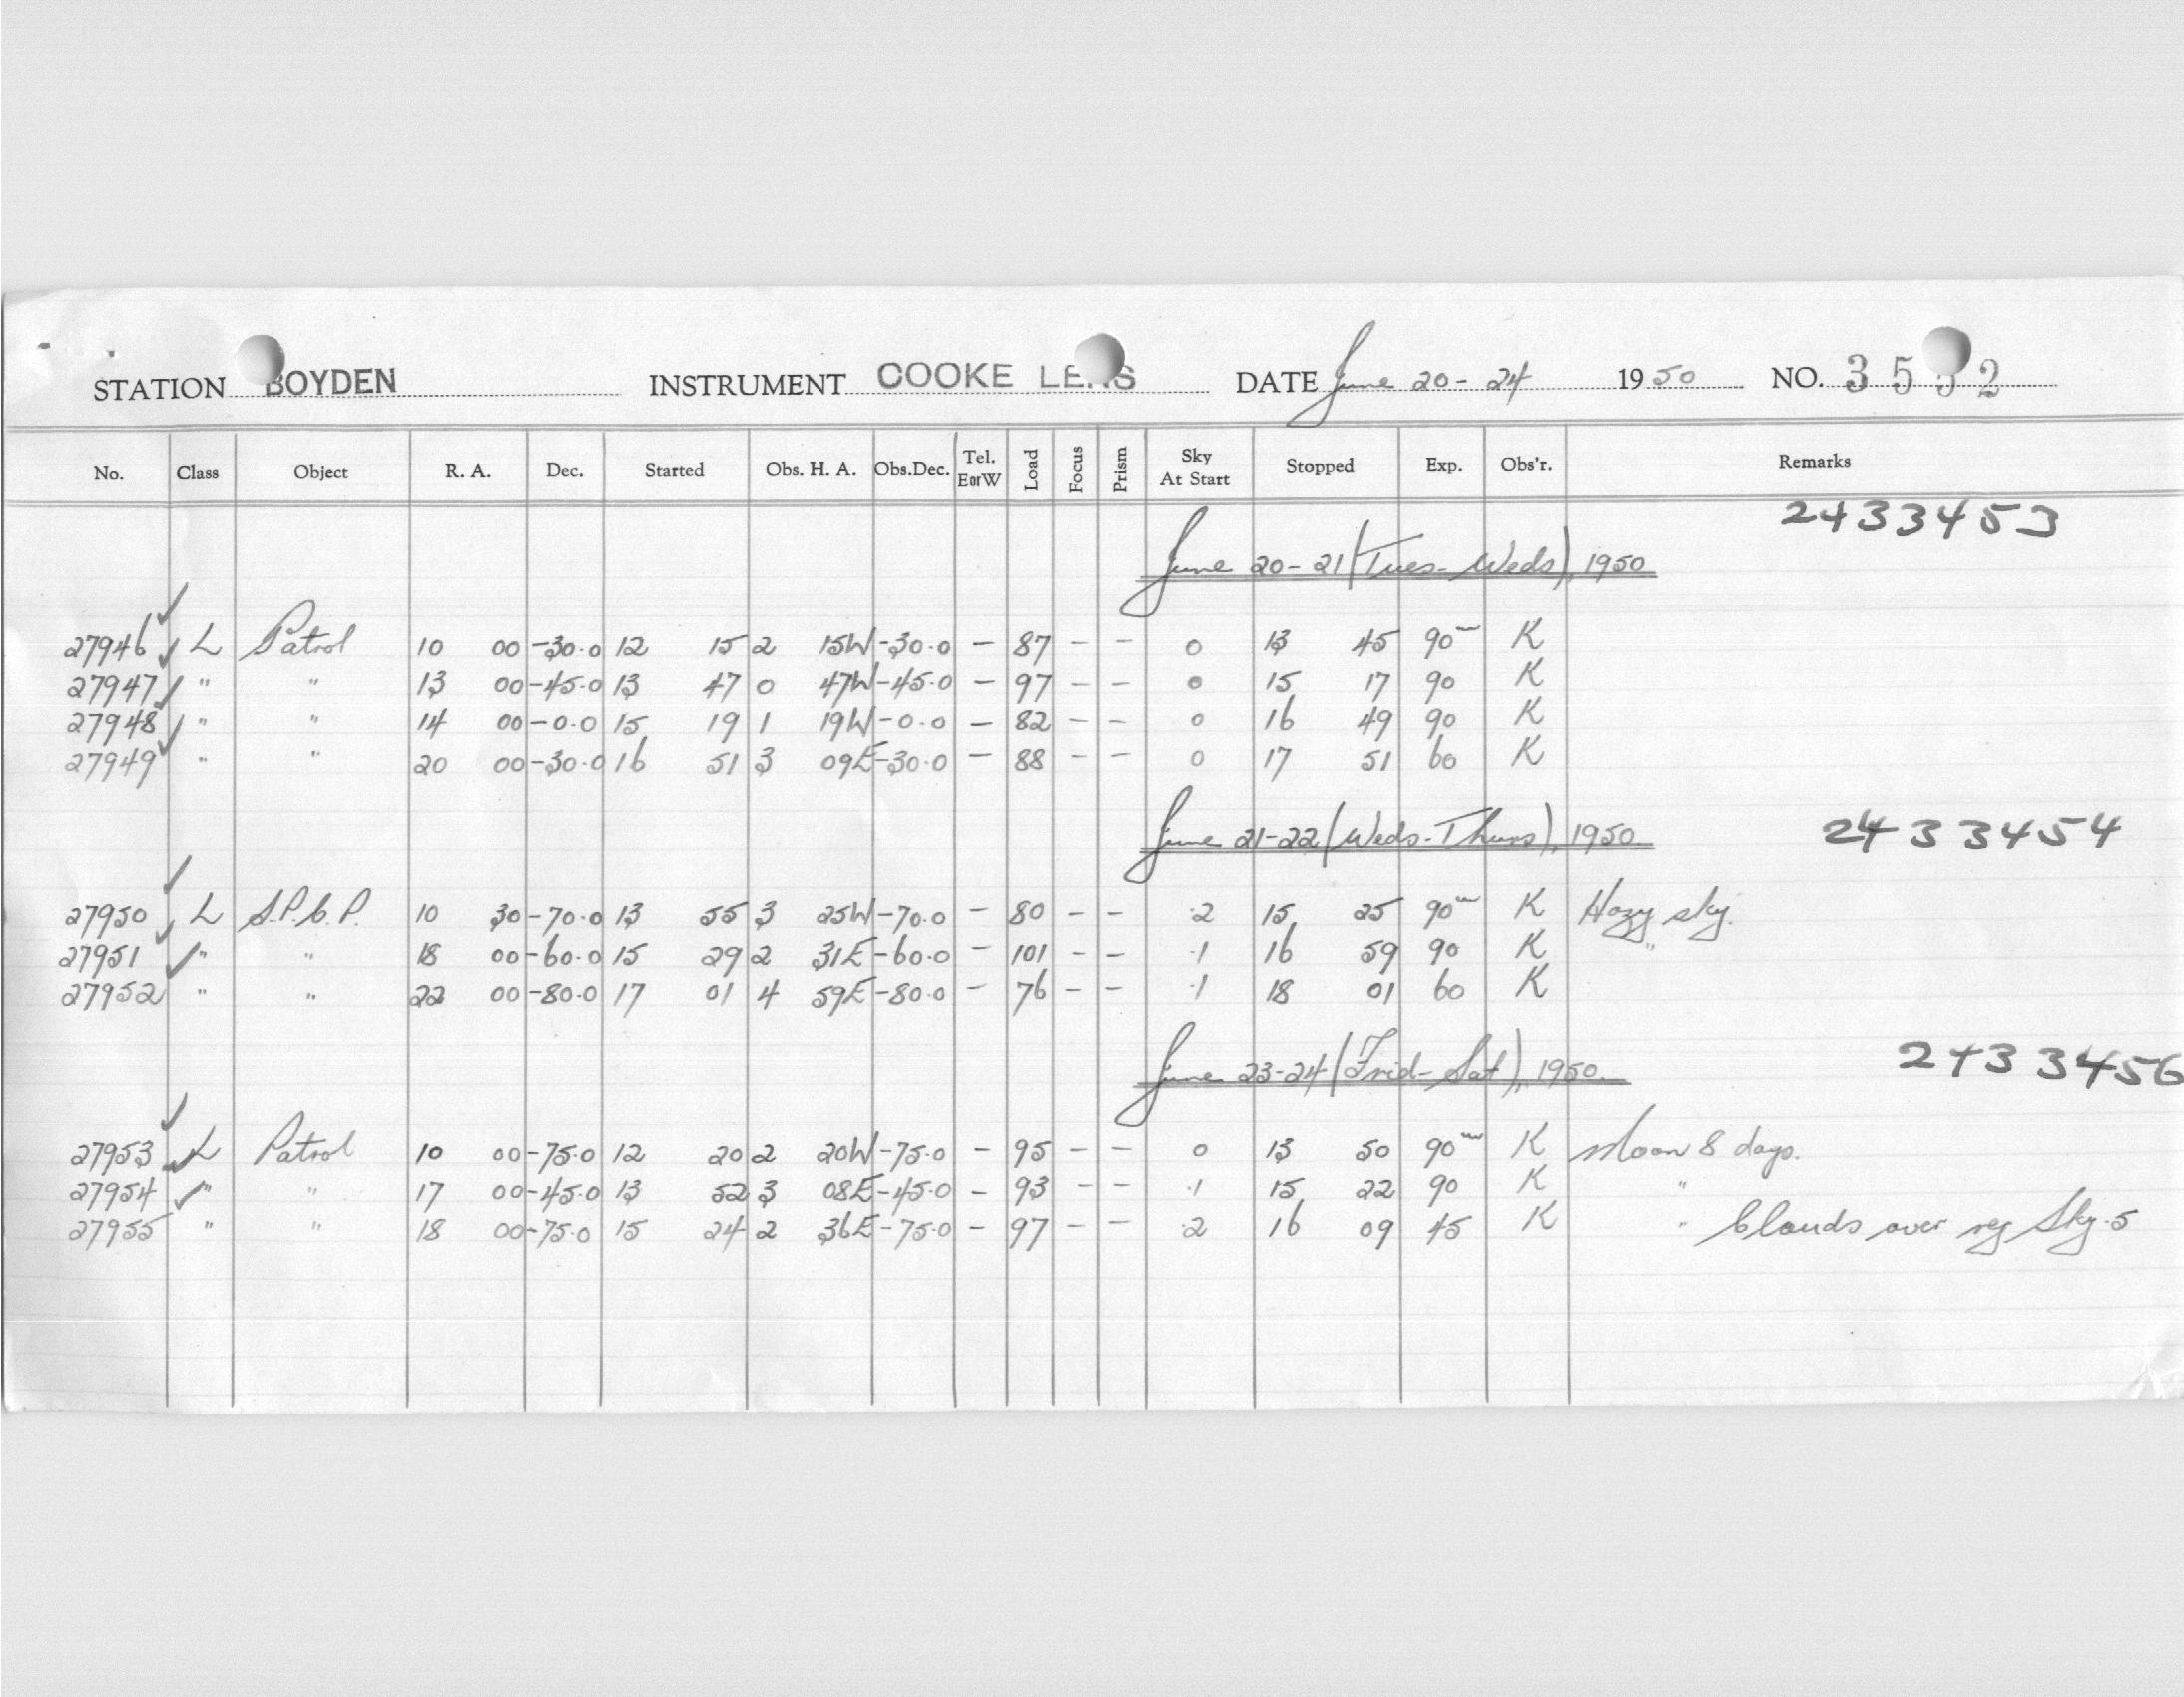 STATION BOYDEN INSTRUMENT COOKE LENS DATE June 20-24 1950 NO. 3552
No. Class Object R. A. Dec. Started Obs. H. A. Obs.Dec. Tel. EorW Load Focus Prism Sky At Start Stopped Exp. Obs'r. Remarks
2433453
June 20-21 (Tues-Weds), 1950
27946 ✓ L Patrol 10 00 -30.0 12 15 2 15W -30.0 - 87 - - 0 13 45 90m K
27947 ✓ " " 13 00 -45.0 13 47 0 47W -45.0 - 97 - - 0 15 17 90 K
27948 ✓ " " 14 00 -0.0 15 19 1 19W -0.0 - 82 - - 0 16 49 90 K
27949 ✓ " " 20 00 -30.0 16 51 3 09E -30.0 - 88 - - 0 17 51 60 K
June 21-22 (Weds-Thurs), 1950 2433454
27950 ✓ L S.P.C.P. 10 30 -70.0 13 55 3 25W -70.0 - 80 - - .2 15 25 90m K Hazy sky.
27951 ✓ " " 18 00 -60.0 15 29 2 31E -60.0 - 101 - - .1 16 59 90 K "
27952 ✓ " " 22 00 -80.0 17 01 4 59E -80.0 - 76 - - .1 18 01 60 K
June 23-24 (Frid-Sat), 1950. 2433456
27953 ✓ L Patrol 10 00 -75.0 12 20 2 20W -75.0 - 95 - - 0 13 50 90m K Moon 8 days.
27954 ✓ " " 17 00 -45.0 13 52 3 08E -45.0 - 93 - - .1 15 22 90 K "
27955 ✓ " " 18 00 -75.0 15 24 2 36E -75.0 - 97 - - .2 16 09 45 K " Clouds over reg Sky .5